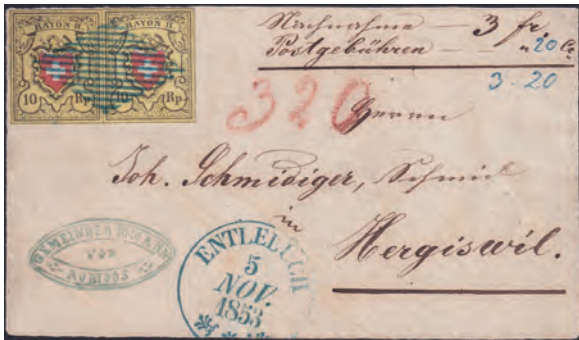 RAYON II. RAYON II.
10 Rp. 10 Rp.
Nachnahme — 3 fr.
Postgebühren — „ 20 Ce
3. 20
320
Herrn
Joh. Schmidiger, Schmid
in
Hergiswil.
GEMEINDEAMMANN
VON
ROMOOS
ENTLEBUCH
5
NOV.
1853